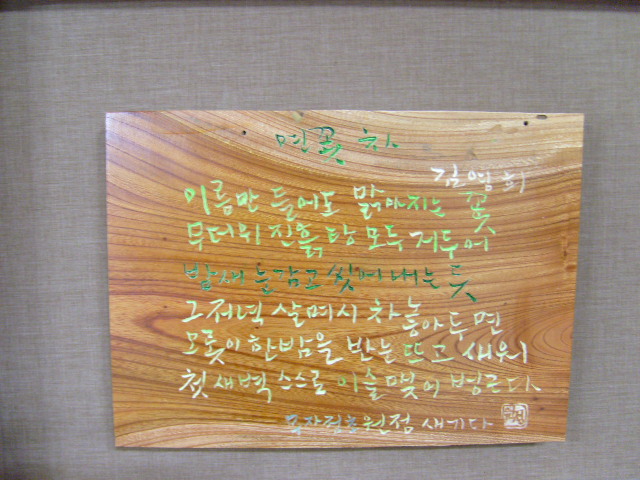 연꽃 차
김영희
이름만 들어도 맑아지는 꽃
무더위 진흙탕 모두 거두어
밤새 눈감고 씻어내는 듯
그 저녁 살며시 차 놓아두면
오롯이 한밤을 반눈 뜨고 새워
첫 새벽 스스로 이슬 맺어 벙근다
원정 새기다